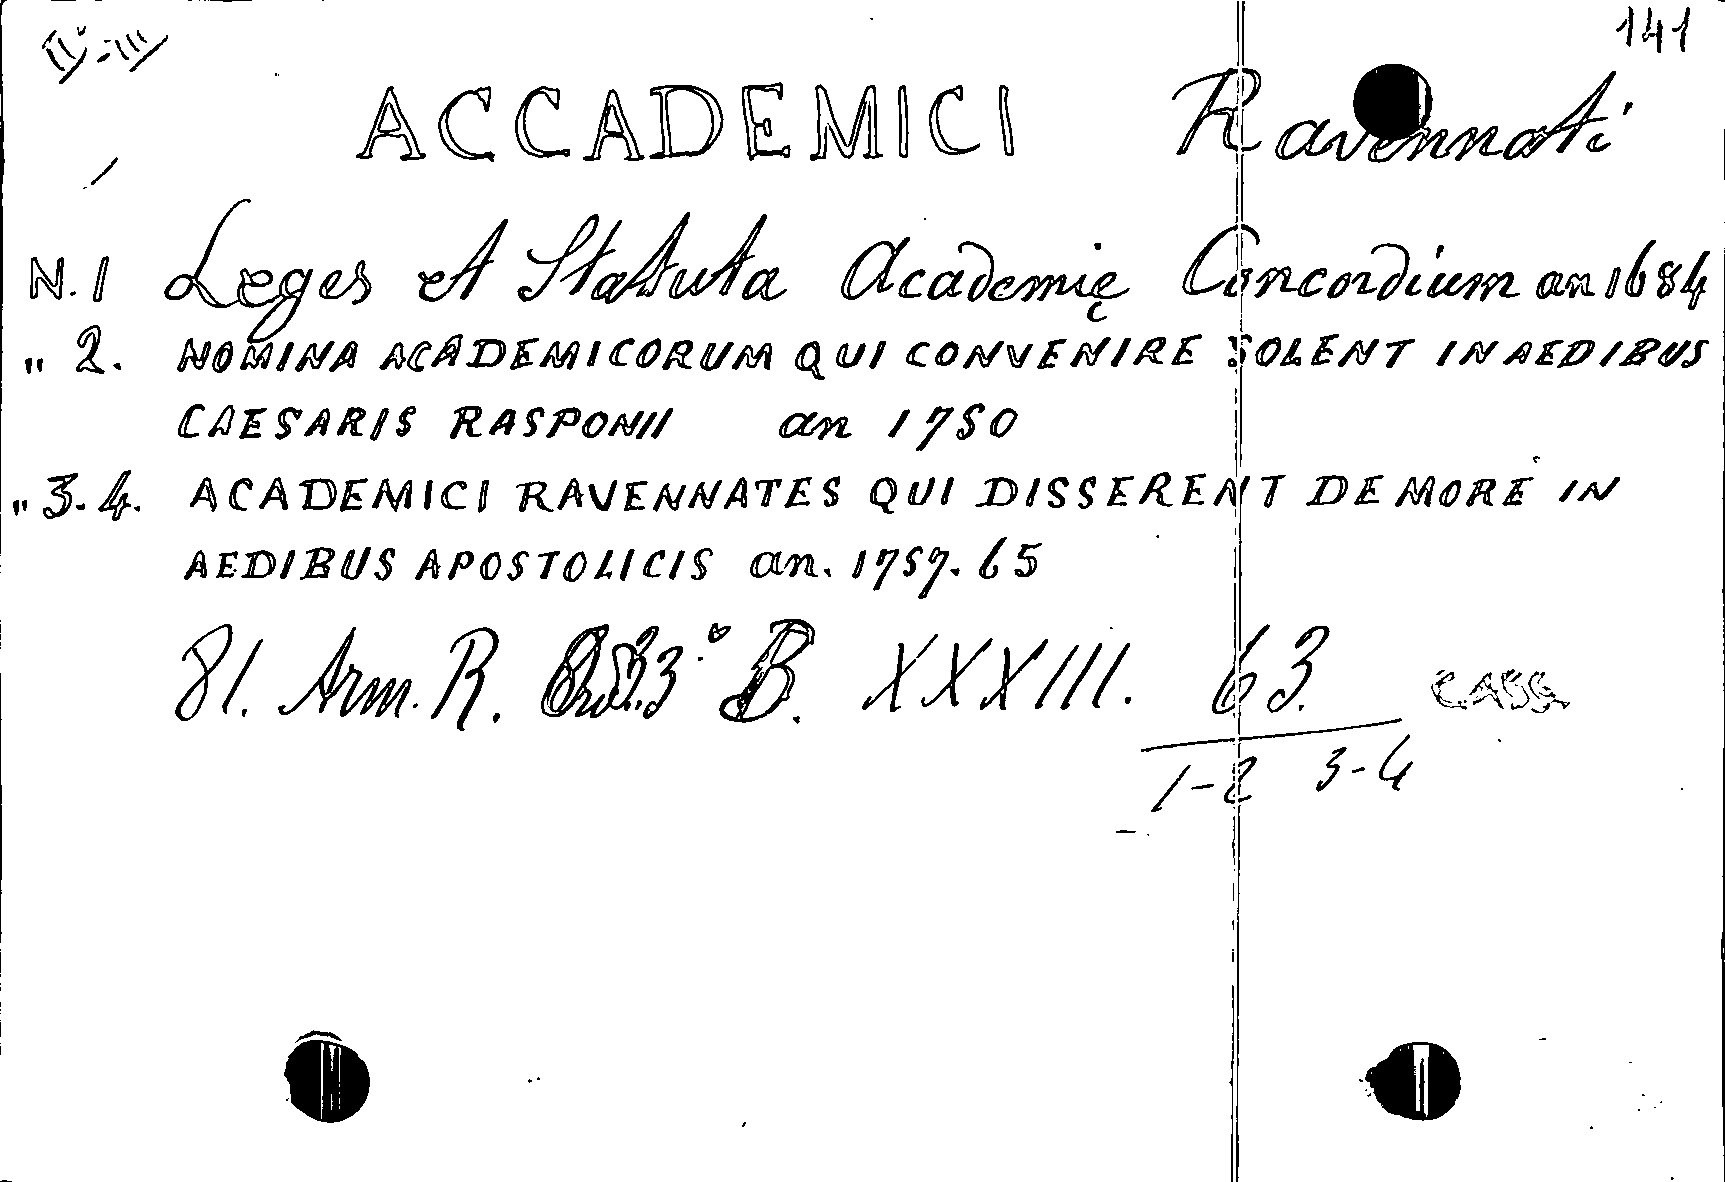 141
II-III
ACCADEMICI Ravennati
N. 1 Leges et Statuta Academię Concordium an 1684
" 2. NOMINA ACADEMICORUM QUI CONVENIRE SOLENT IN AEDIBUS
CAESARIS RASPONII an 1750
" 3. 4. ACADEMICI RAVENNATES QUI DISSERENT DE MORE IN
AEDIBUS APOSTOLICIS an. 1757. 65
81. Arm. R. 3° B. XXXIII. 63.
1-2 3-4